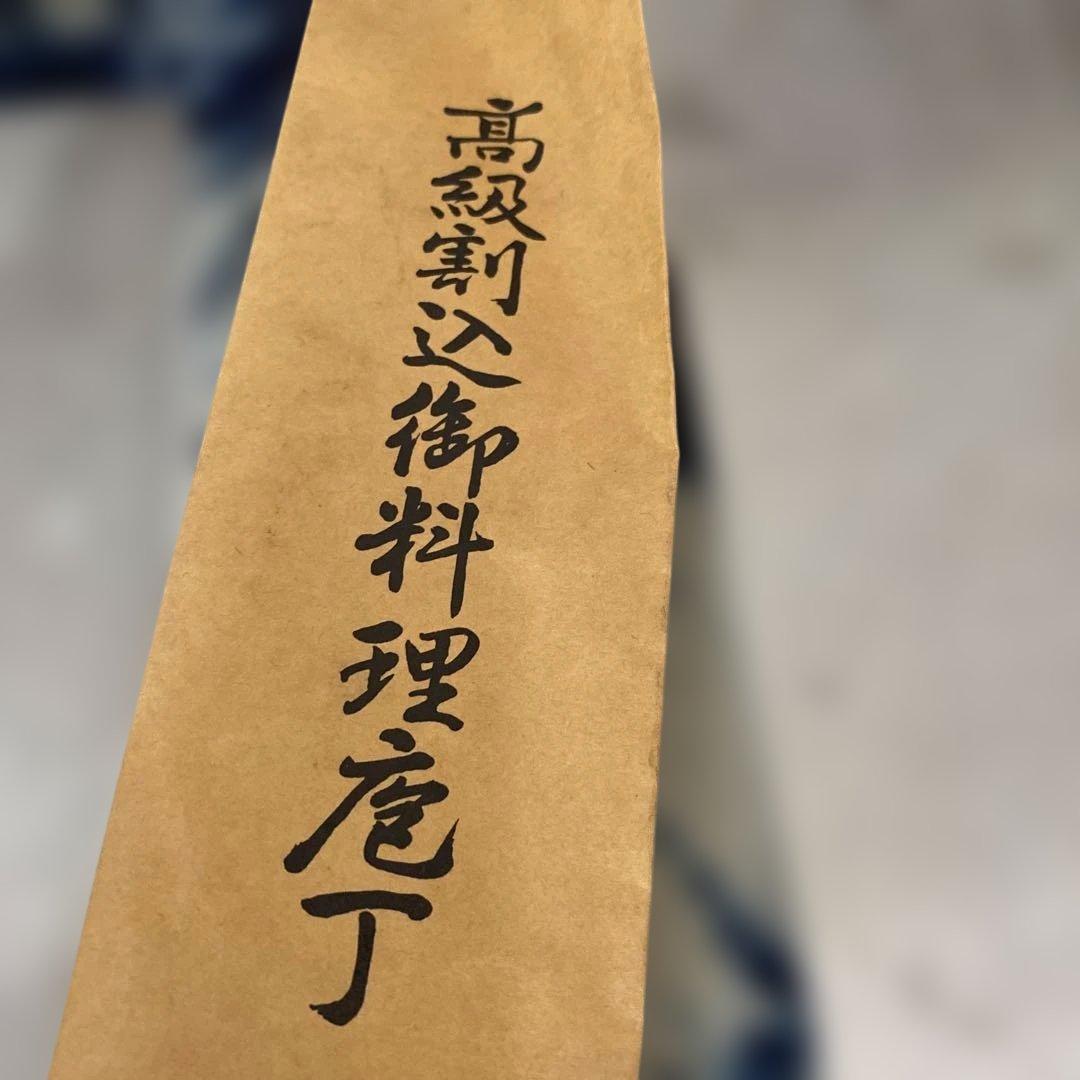 高級割込御料理庖丁